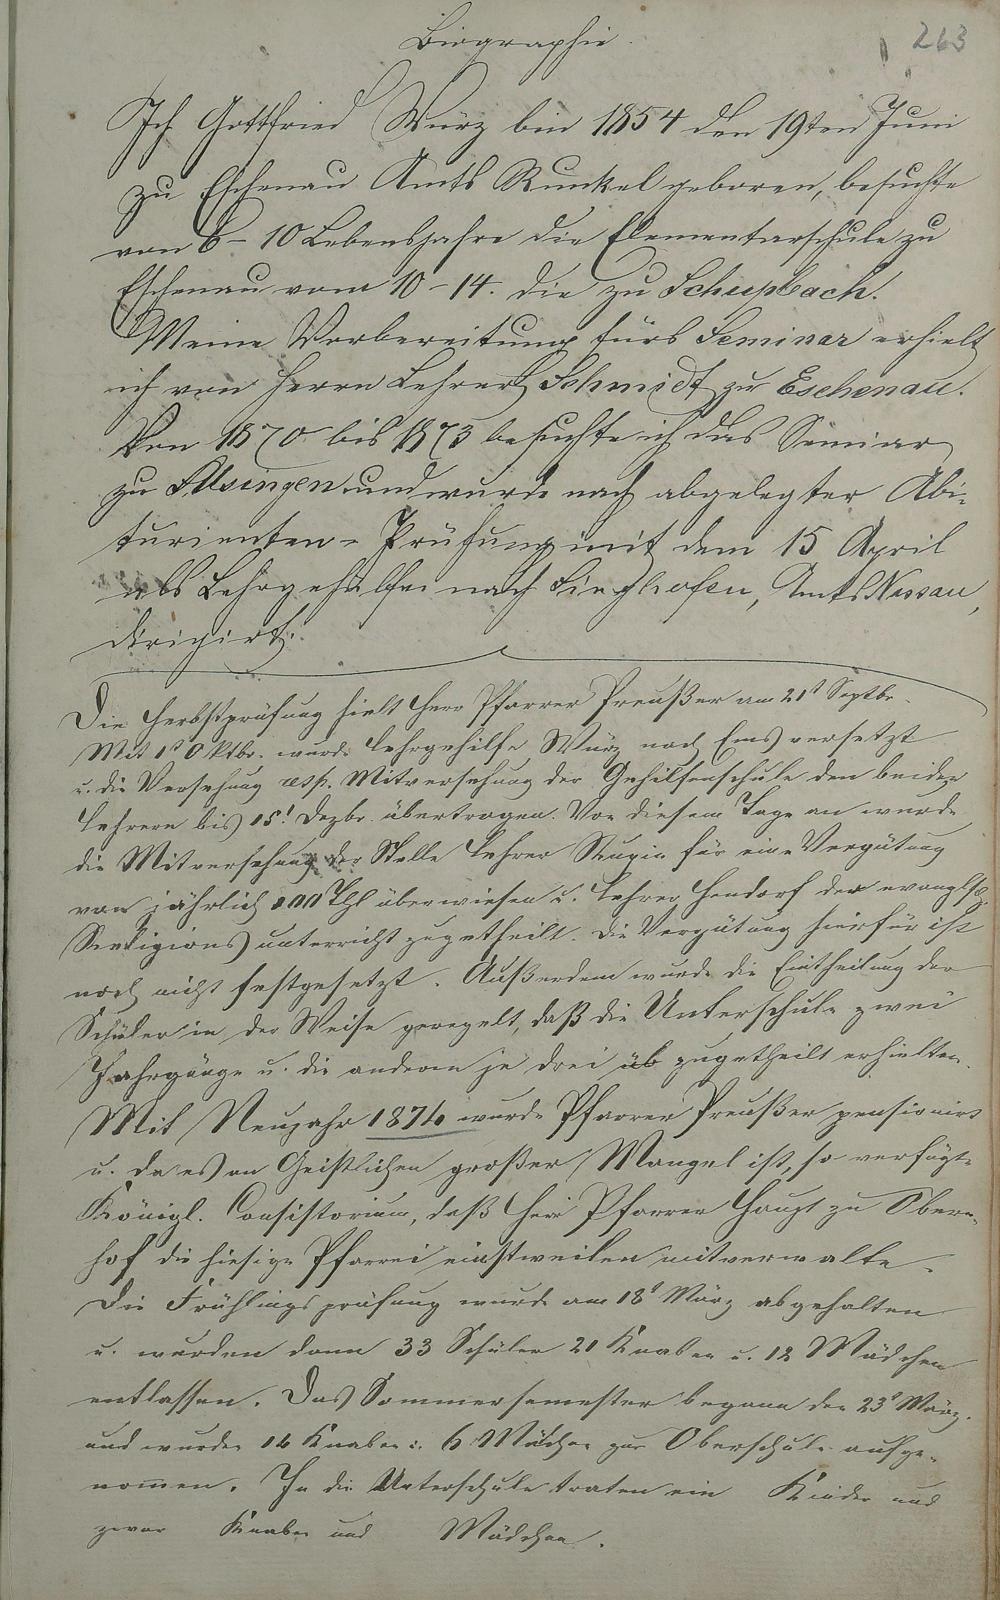 263
Biographie.
Ich Gottfried Würz bin 1854 den 19ten Juni
zu Eschenau Amts Runkel geboren, besuchte
von 6 – 10 Lebensjahre die Elementarschule zu
Eschenau vom 10 – 14. die zu Schupbach.
Meine Vorbereitung fürs Seminar erhielt
ich von Herrn Lehrer Schmidt zu Eschenau.
Von 1870 bis 1873 besuchte ich das Seminar
zu Usingen und wurde nach abgelegter Abi-
turienten-Prüfung mit dem 15 April
als Lehrgehülfe nach Singhofen, Amts Nassau,
dirigirt.
Die Herbstprüfung hielt Herr Pfarrer Preußer am 21t Septbr.
Mit 1t Oktbr. wurde Lehrgehilfe Würz nach Ems versetzt
u. die Versehung resp. Mitversehung der Gehilfenschule den beiden
Lehrern bis 15t Dezbr. übertragen. Von diesem Tage an wurde
die Mitversehung der Stelle Lehrer für eine Vergütung
von jährlich Thl überwiesen u. Lehrer Hendorf der evanglsch.
Religionsunterricht zugetheilt. Die Vergütung hierfür ist
noch nicht festgesetzt. Außerdem wurde die Eintheilung der
Schüler in der Weise geregelt, daß die Unterschule zwei
Jahrgänge u. die anderen je drei zugetheilt erhielten.
Mit Neujahr 1874 wurde Pfarrer Preußer pensionirt
u. da es an Geistlichen großer Mangel ist, so verfügte
Königl. Consistorium, daß Herr Pfarrer Haupt zu Obern-
hof die hiesige Pfarrei einstweilen mitverwalte.
Die Frühlingsprüfung wurde am 18t März abgehalten
u. wurden dann 33 Schüler 21 Knaben u. 12 Mädchen
entlassen. Das Sommersemester begann den 23t März.
und wurden Knaben u. 6 Mädchen zur Oberschule aufge-
nommen. In die Unterschule traten ein Kinder und
zwar Knaben und Mädchen.